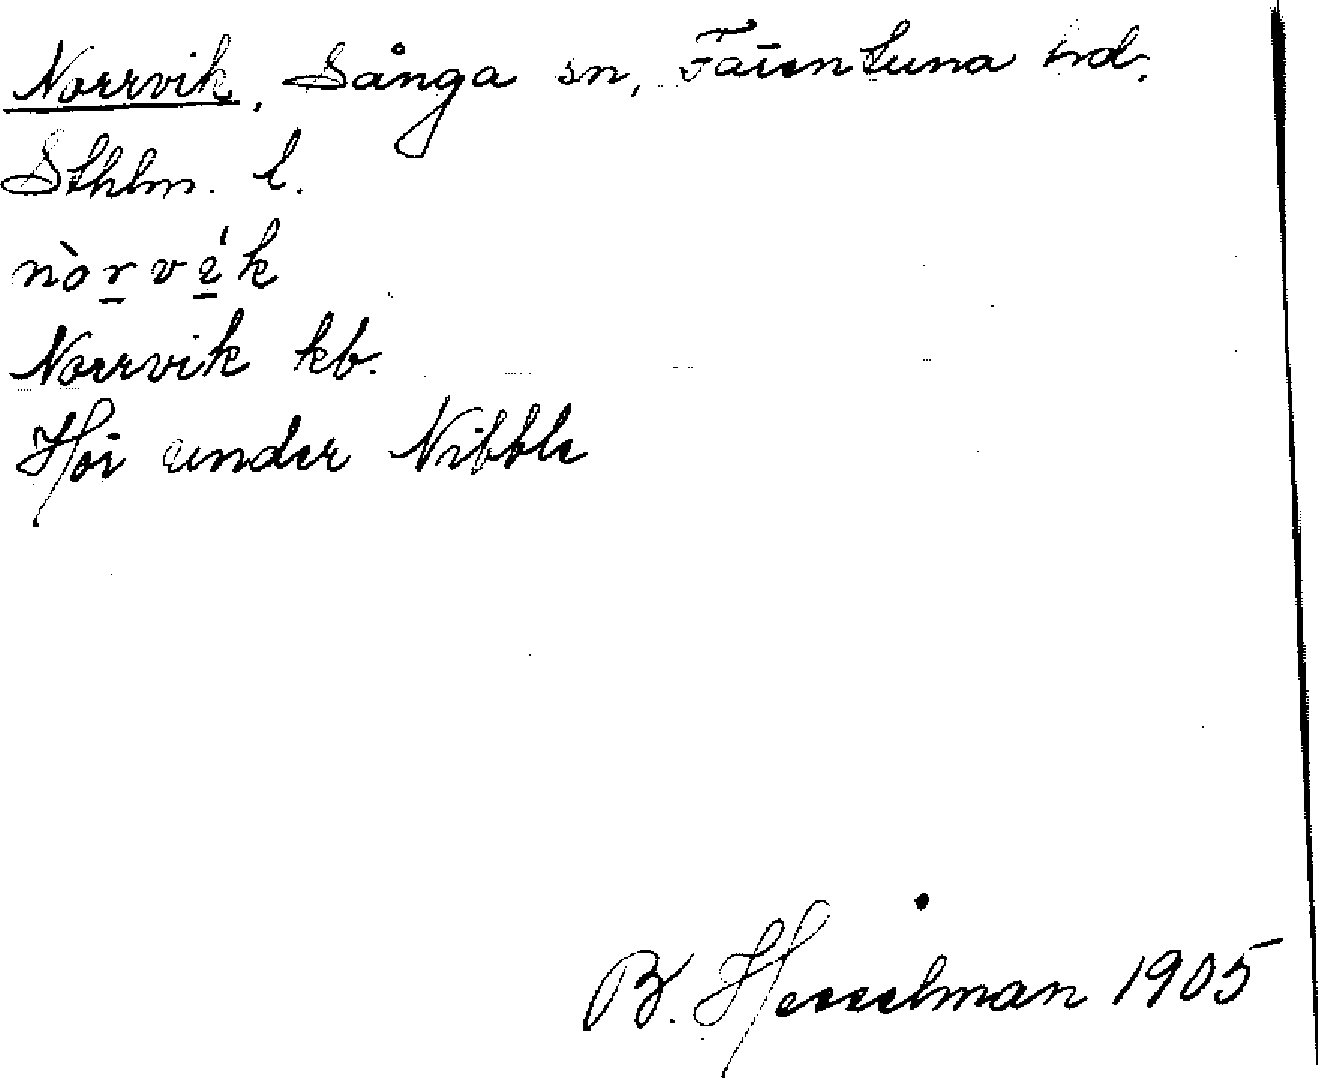 Norrvik, Sånga sn, Färentuna hd.
Sthlm. l.
nòrvi̇́k
Norrvik kb.
Hör under Nibble
B. Hesselman 1905